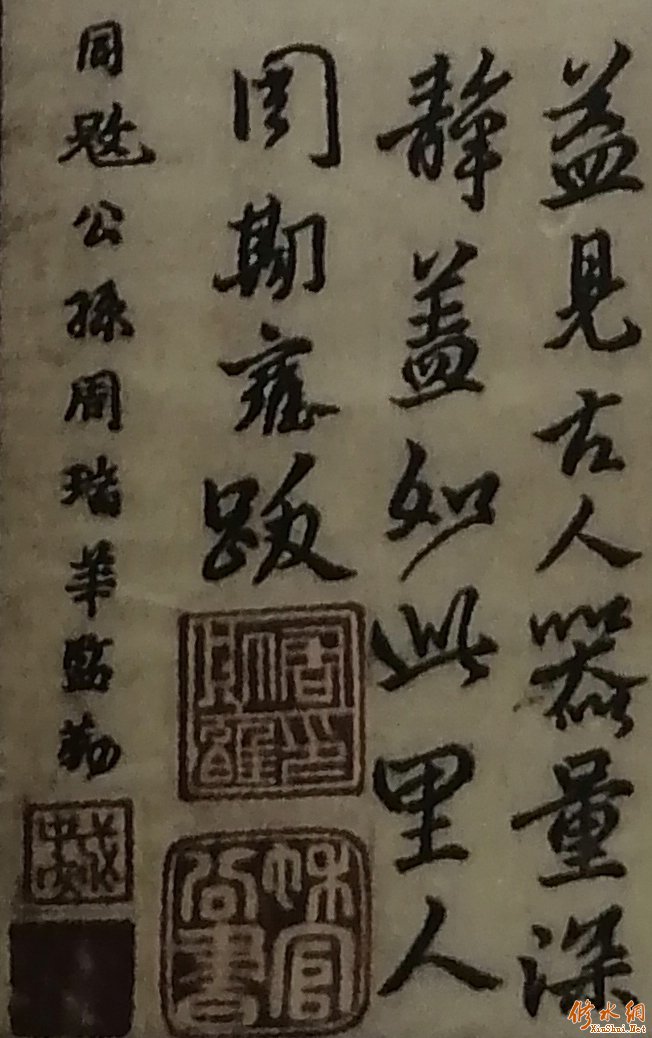 益見古人器量深
靜蓋如此里人
周期雍跋
秋官尚書
公孫周瑞華監勒
修水網
XiuShui.Net